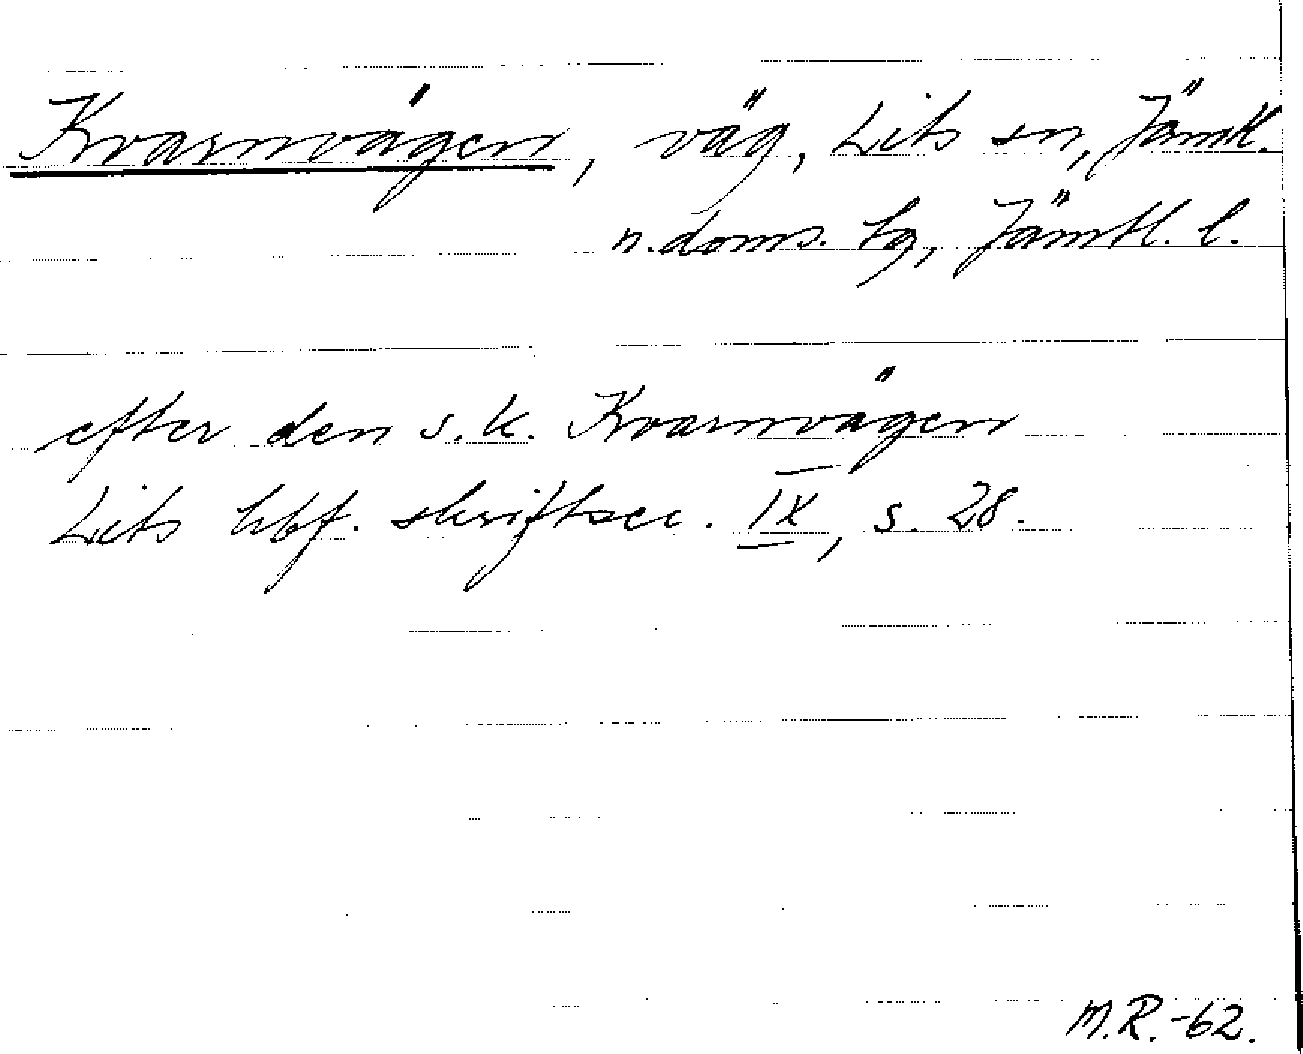 Kvarnvägen, väg, Lits sn, Jämtl.
n. doms. tg, Jämtl. l.
efter den s.k. Kvarnvägen
Lits hbf. skriftser. IX, s. 28.
M.R.-62.